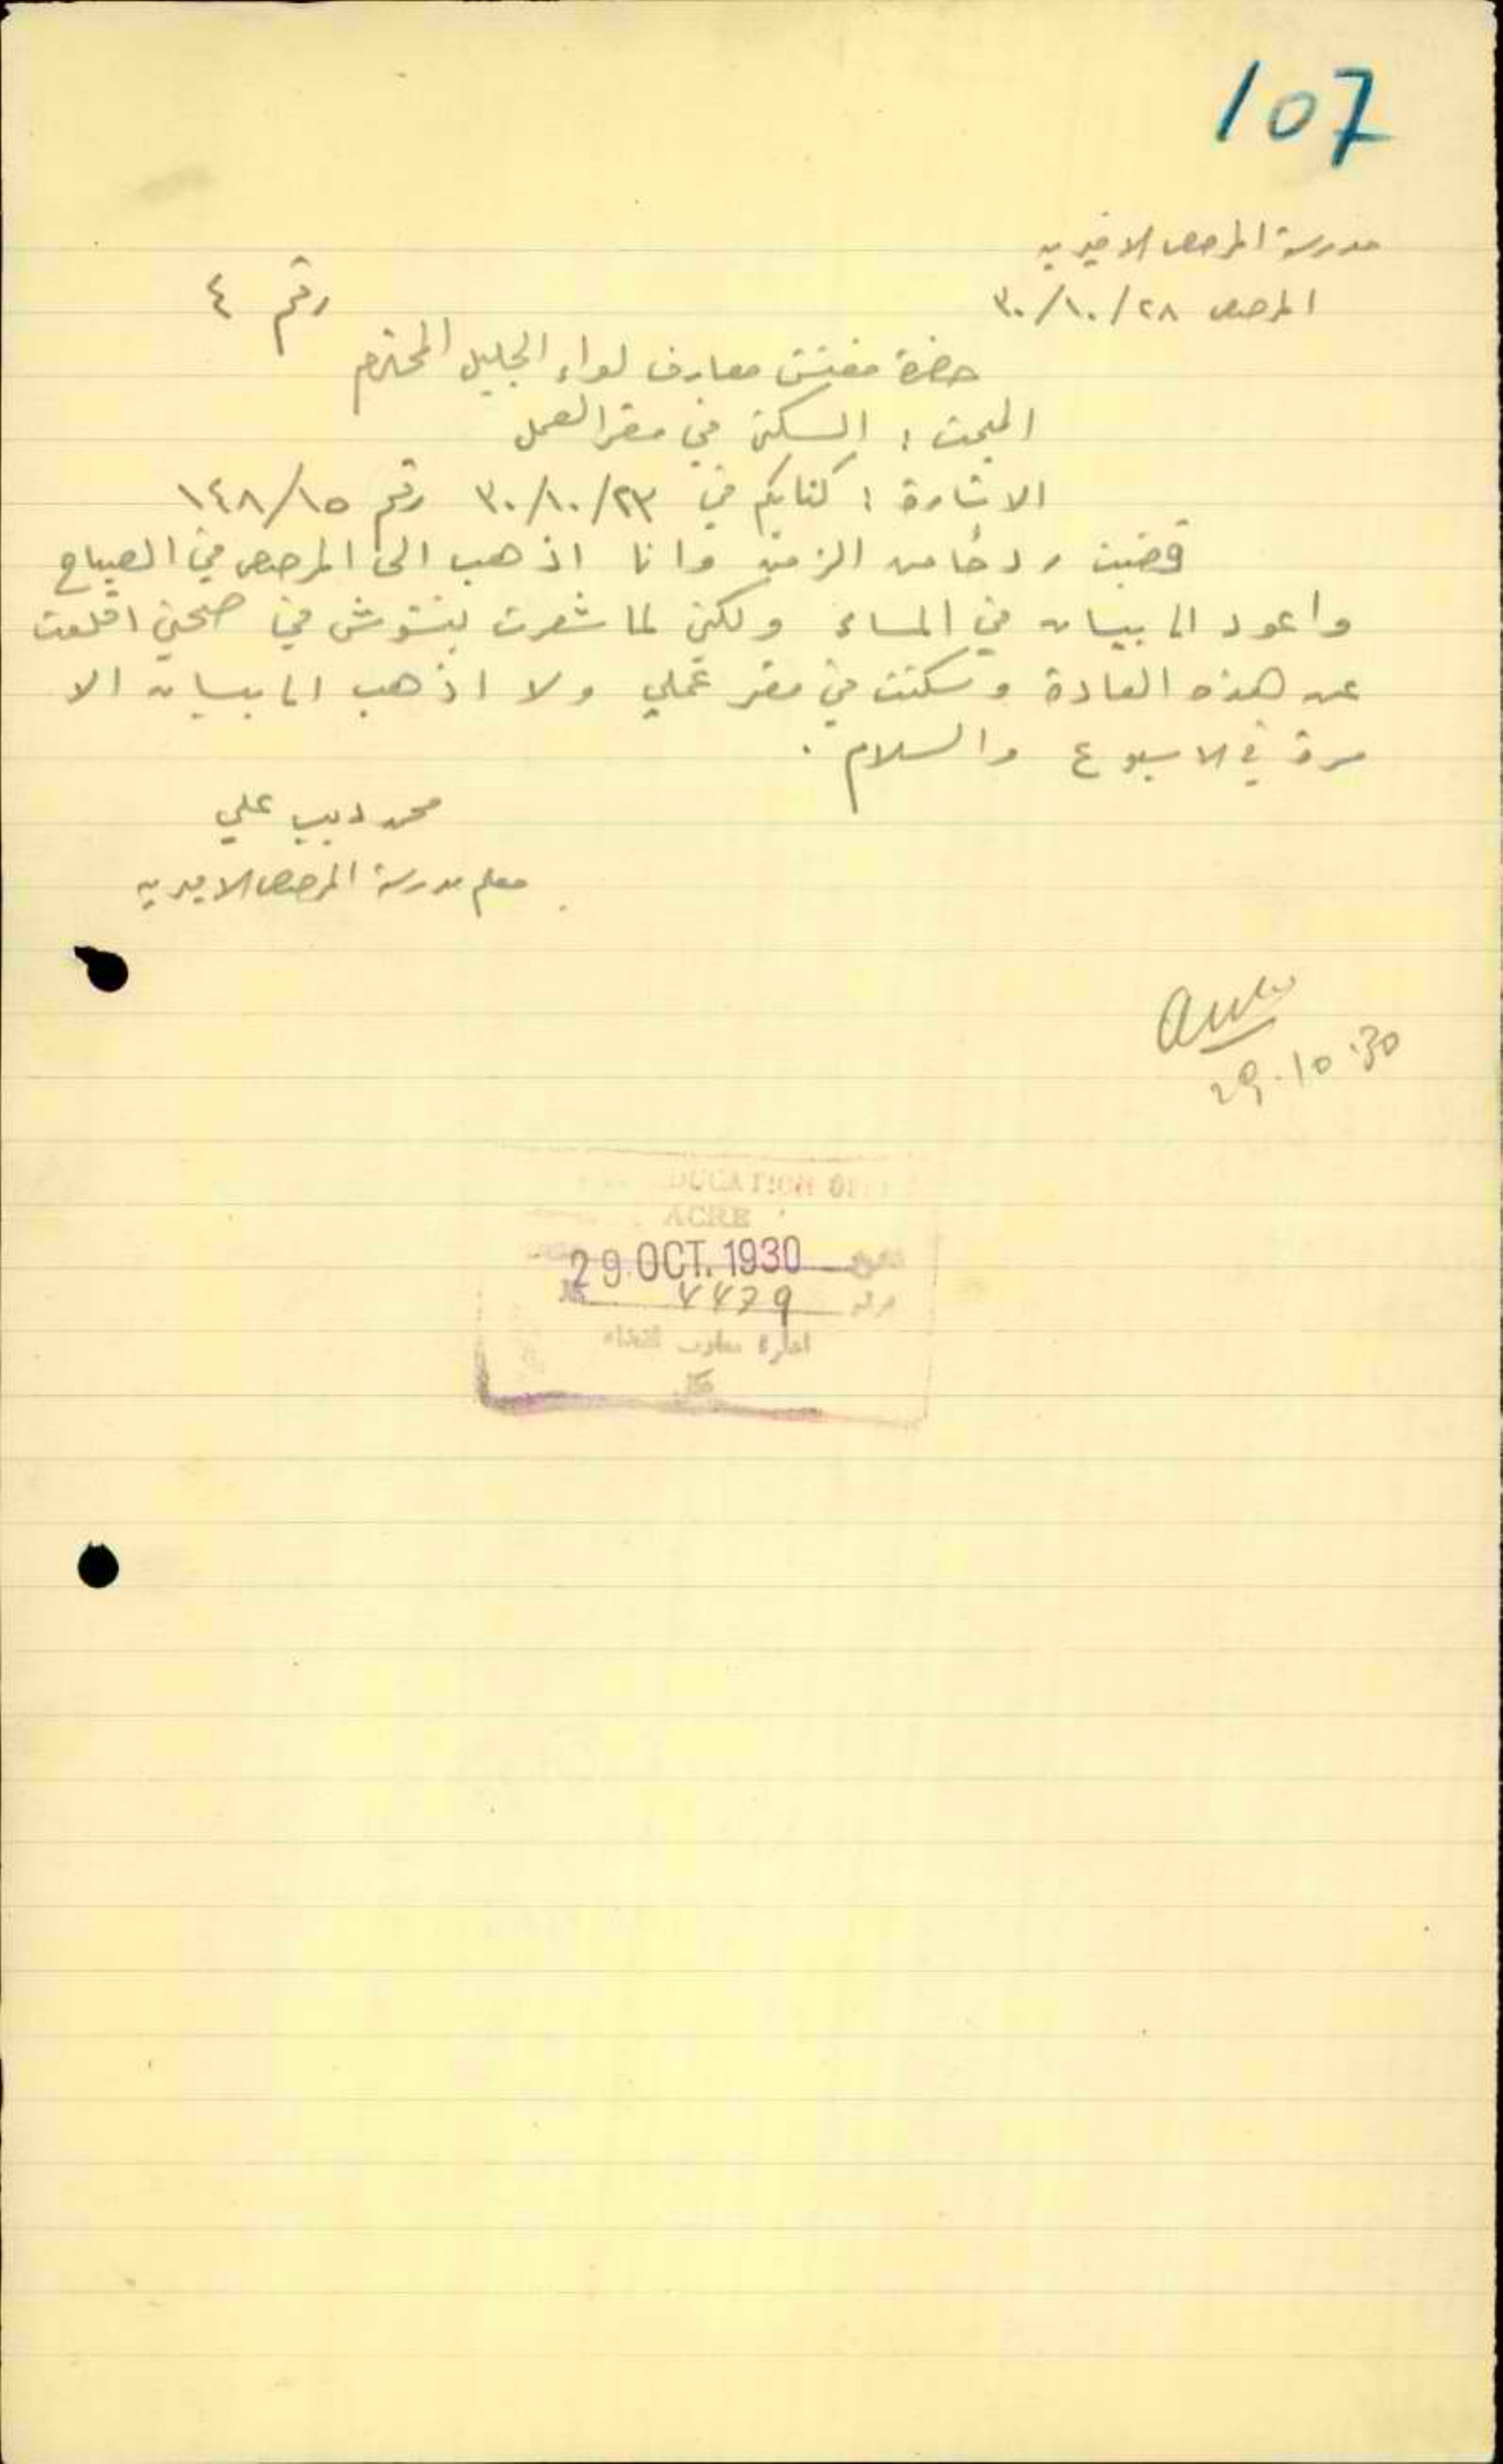 107
مدرسة المرصص الاميريه
المرصص ٢٨/١٠/٣٠
رقم ٤
حضرة مفتش معارف لواء الجليل المحترم
المبحث : السكن في مقر العمل
الاشارة : كتابكم في ٢٣/١٠/٣٠ رقم ١٤٨/١٥
قضيت ردحًا من الزمن وانا اذهب الى المرصص في الصباح
واعود الى بيسان في المساء ولكن لما شعرت بتشوش في صحتي اقلعت
عن هذه العادة وسكنت في مقر عملي ولا اذهب الى بيسان الا
مرة في الاسبوع والسلام .
محمد ديب علي
معلم مدرسة المرصص الاميريه
29.10.30
EDUCATION
ACRE
29.OCT.1930
ادارة معارف القضاء
عكا